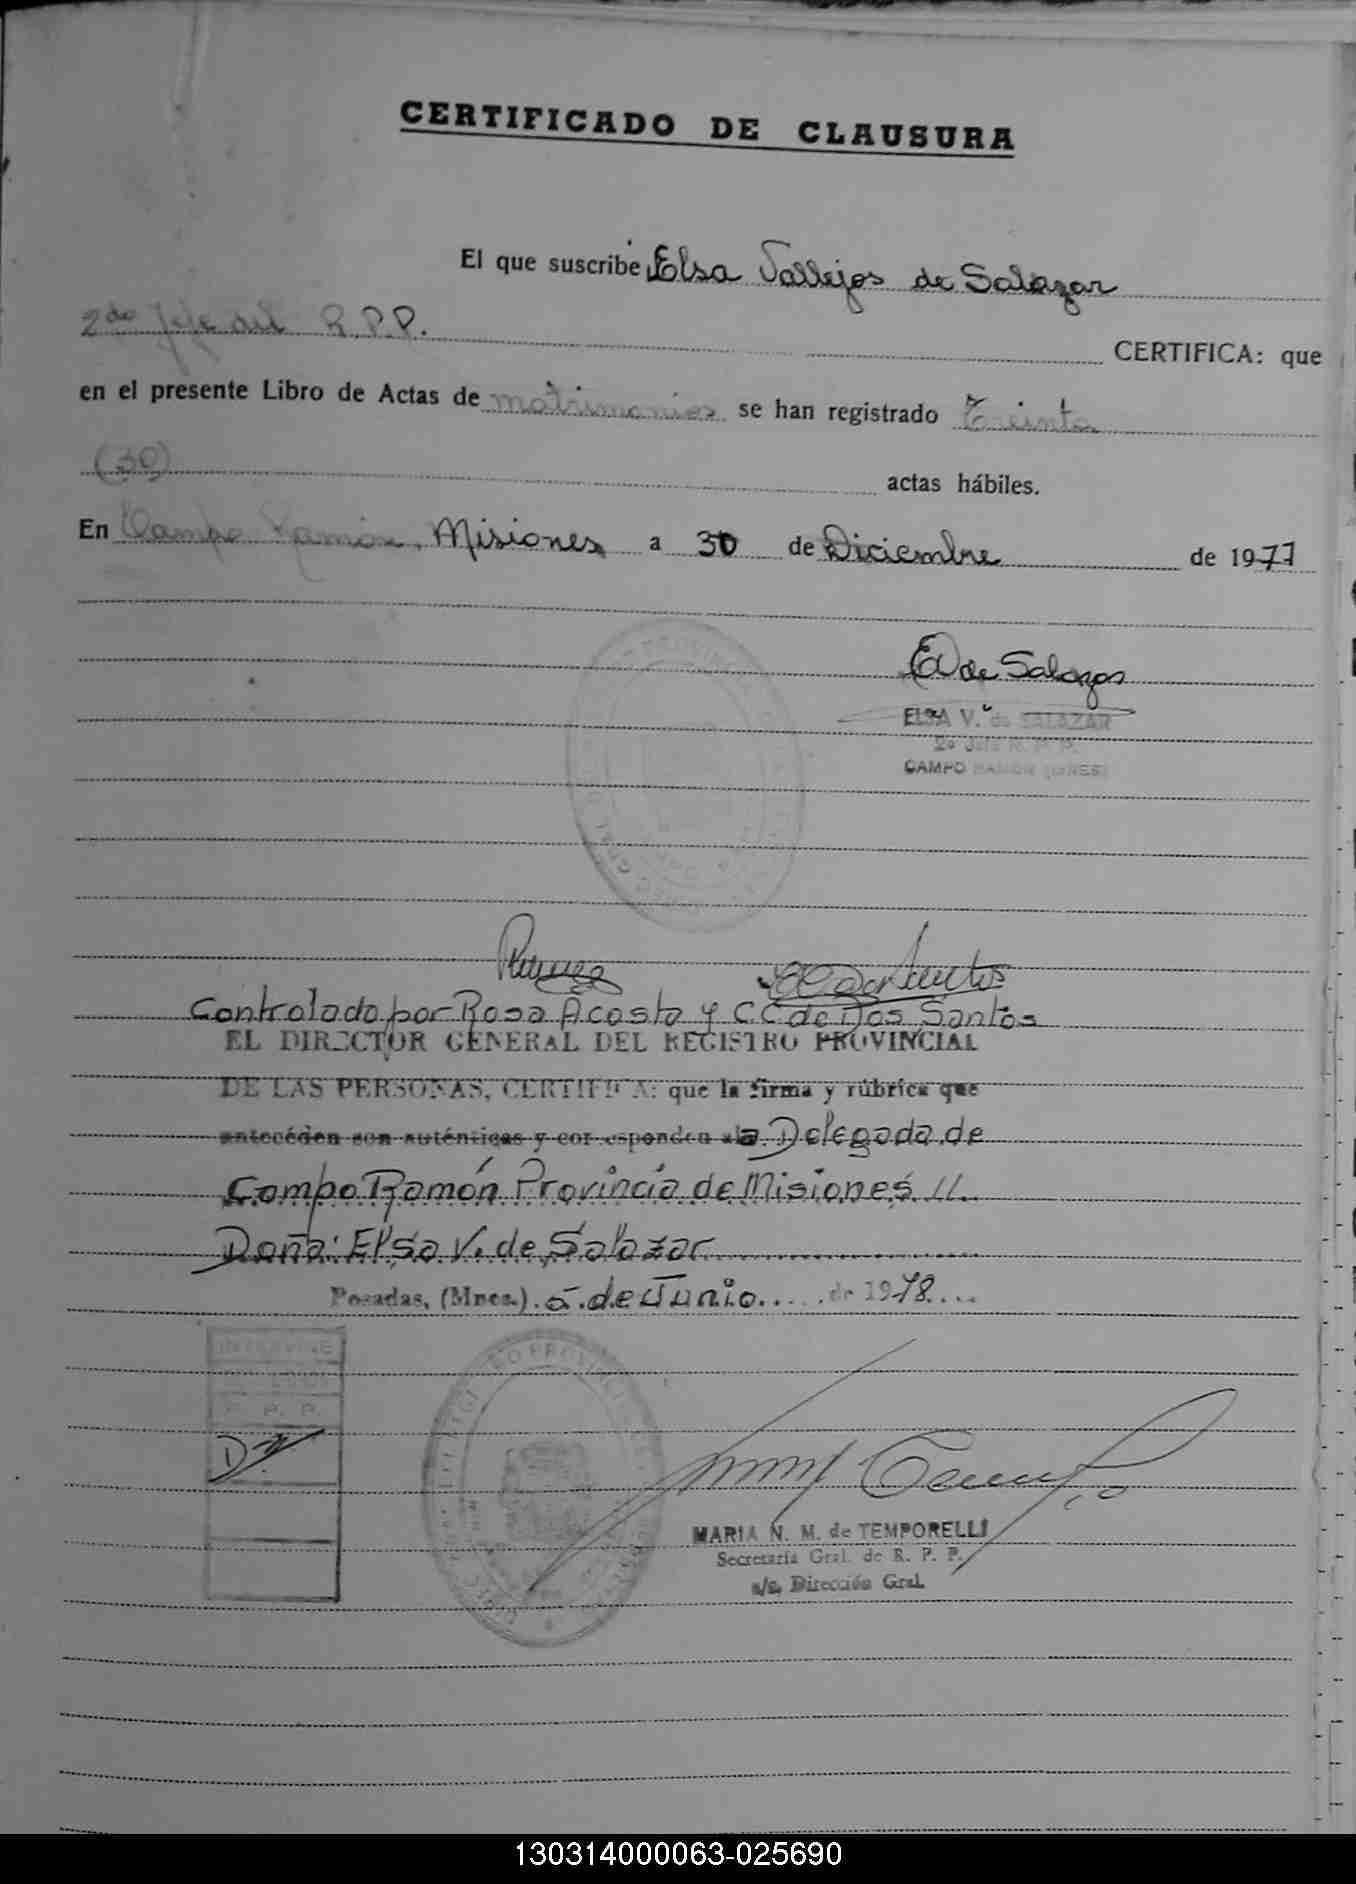 CERTIFICADO DE CLAUSURA
El que suscribe Elsa Vallejos de Salazar
2do Jefe del R.P.P. CERTIFICA: que
en el presente Libro de Actas de matrimonios se han registrado Treinta
(30) actas hábiles.
En Campo Ramón, Misiones a 30 de Diciembre de 1977
EV de Salazar
ELSA V. de SALAZAR
2o Jefe R. P. P.
CAMPO RAMON (MNES)
Controlado por Rosa Acosta y C.C de Dos Santos
EL DIRECTOR GENERAL DEL REGISTRO PROVINCIAL
DE LAS PERSONAS, CERTIFICA: que la firma y rúbrica que
antecéden son auténticas y corresponden a la Delegada de
Campo Ramón Provincia de Misiones
Doña: Elsa V. de Salazar
Posadas, (Mnes.) 5 de Junio de 1978
INTERVINE
R. P. P.
MARIA N. M. de TEMPORELLI
Secretaria Gral. de R. P. P.
a/c. Dirección Gral.
130314000063-025690